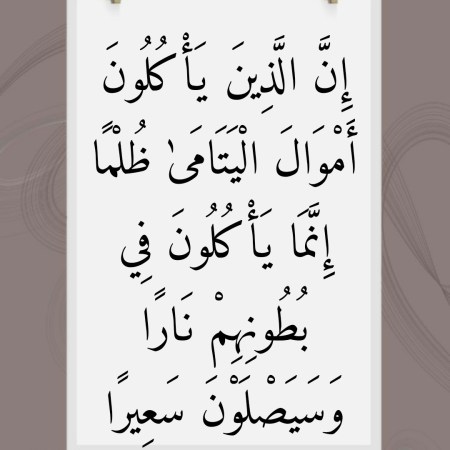 إِنَّ الَّذِينَ يَأْكُلُونَ
أَمْوَالَ الْيَتَامَىٰ ظُلْمًا
إِنَّمَا يَأْكُلُونَ فِي
بُطُونِهِمْ نَارًا
وَسَيَصْلَوْنَ سَعِيرًا